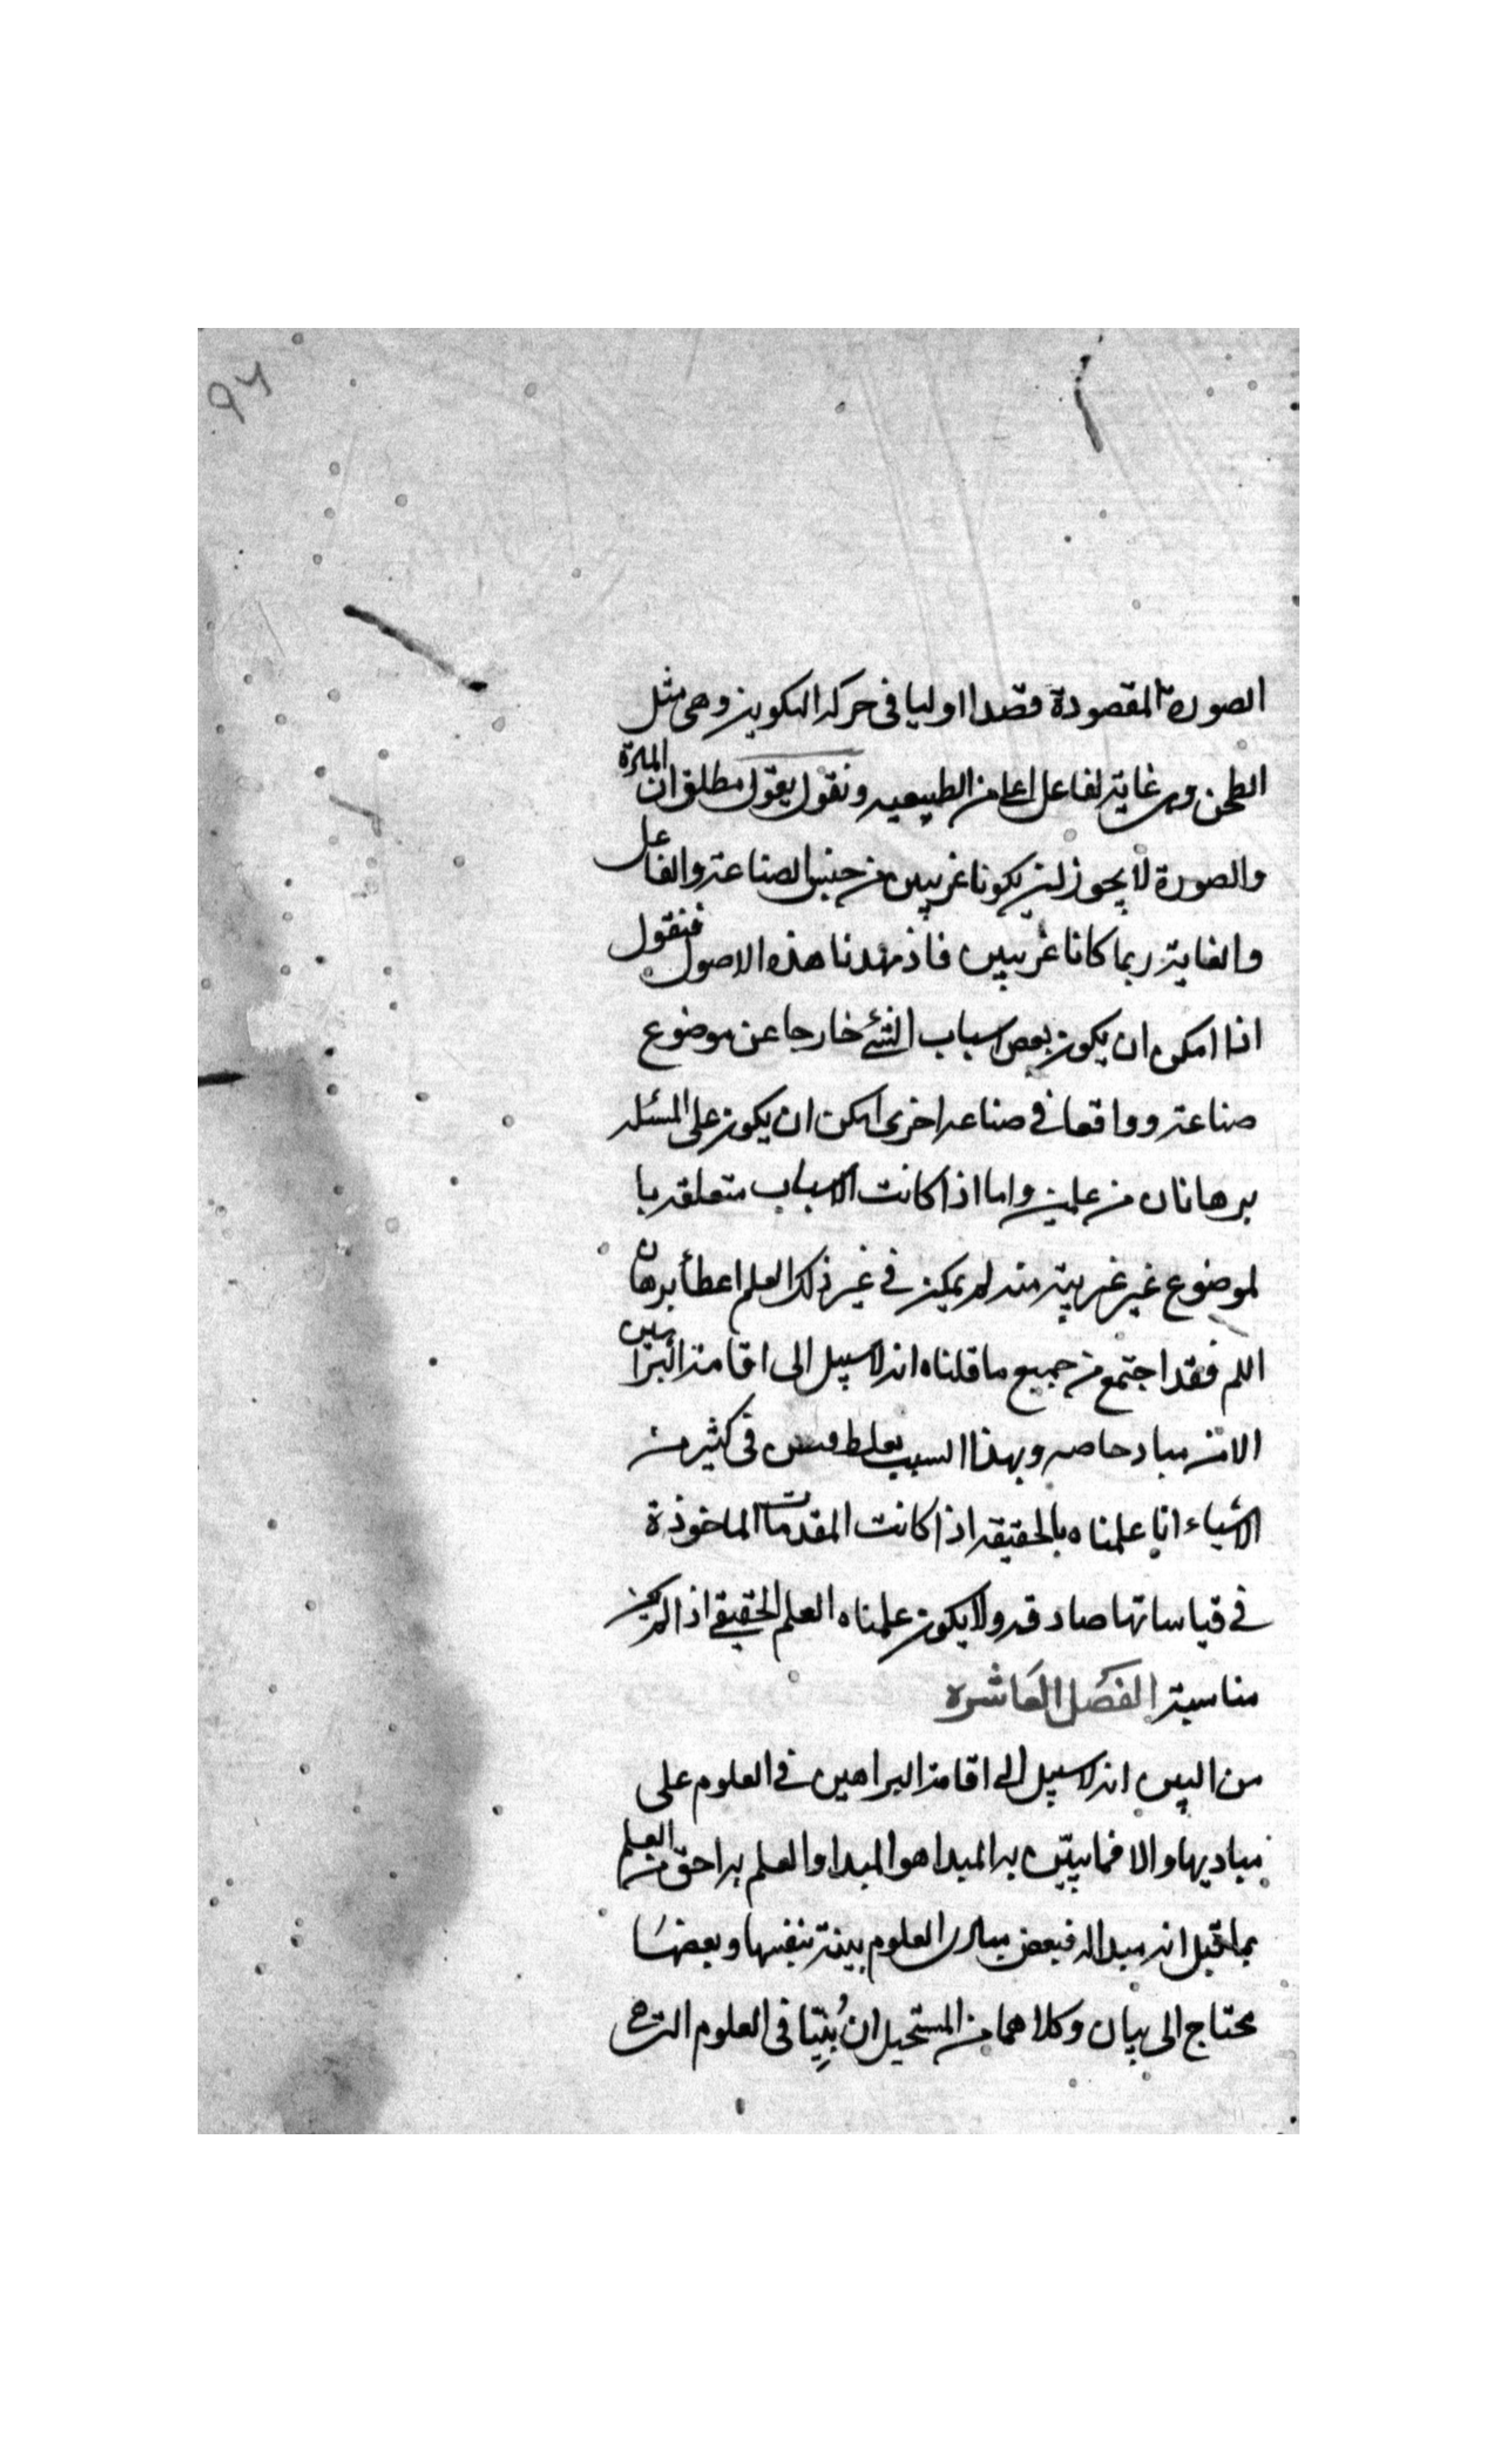 ٩٢
الصورة المقصودة قصدا اوليا فى حركة التكوين وهى مثل
الطحن وهى غاية لفاعل اعلى من الطبيعيه ونقول بقول مطلق ان المادة
والصورة لا يجوز ان يكونا غريبين من جنس الصناعة والفاعل
والغاية ربما كانا غريبين فاذ مهدنا هذه الاصول فنقول
اذا امكن ان يكون بعض اسباب الشئ خارجا عن موضوع
صناعة وواقعا فى صناعه اخرى امكن ان يكون على المسئله
برهانان من علمين واما اذا كانت الاسباب متعلقه با
لموضوع غير غريبة منه لم يمكن فى غير ذلك العلم اعطأ برهان
اللم فقد اجتمع من جميع ما قلناه انه لا سبيل الى اقامة البراهين
الا من مباد خاصه وبهذا السبب يغلط فى كثير من
الاشياء انا علمناه بالحقيقه اذا كانت المقدمات الماخوذة
فى قياساتها صادقه ولا يكون علمناه العلم الحقيقى اذ لم يكن
مناسبة الفصل العاشره
من البين انه لا سبيل الى اقامة البراهين فى العلوم على
مباديها والا فما يبيّن به المبدا هو المبدا والعلم به احقّ من العلم
بما قيل انه مبدا له فبعض مبادى العلوم بينة بنفسها وبعضها
محتاج الى بيان وكلاهما من المستحيل ان يُبيّنا فى العلوم التى هى